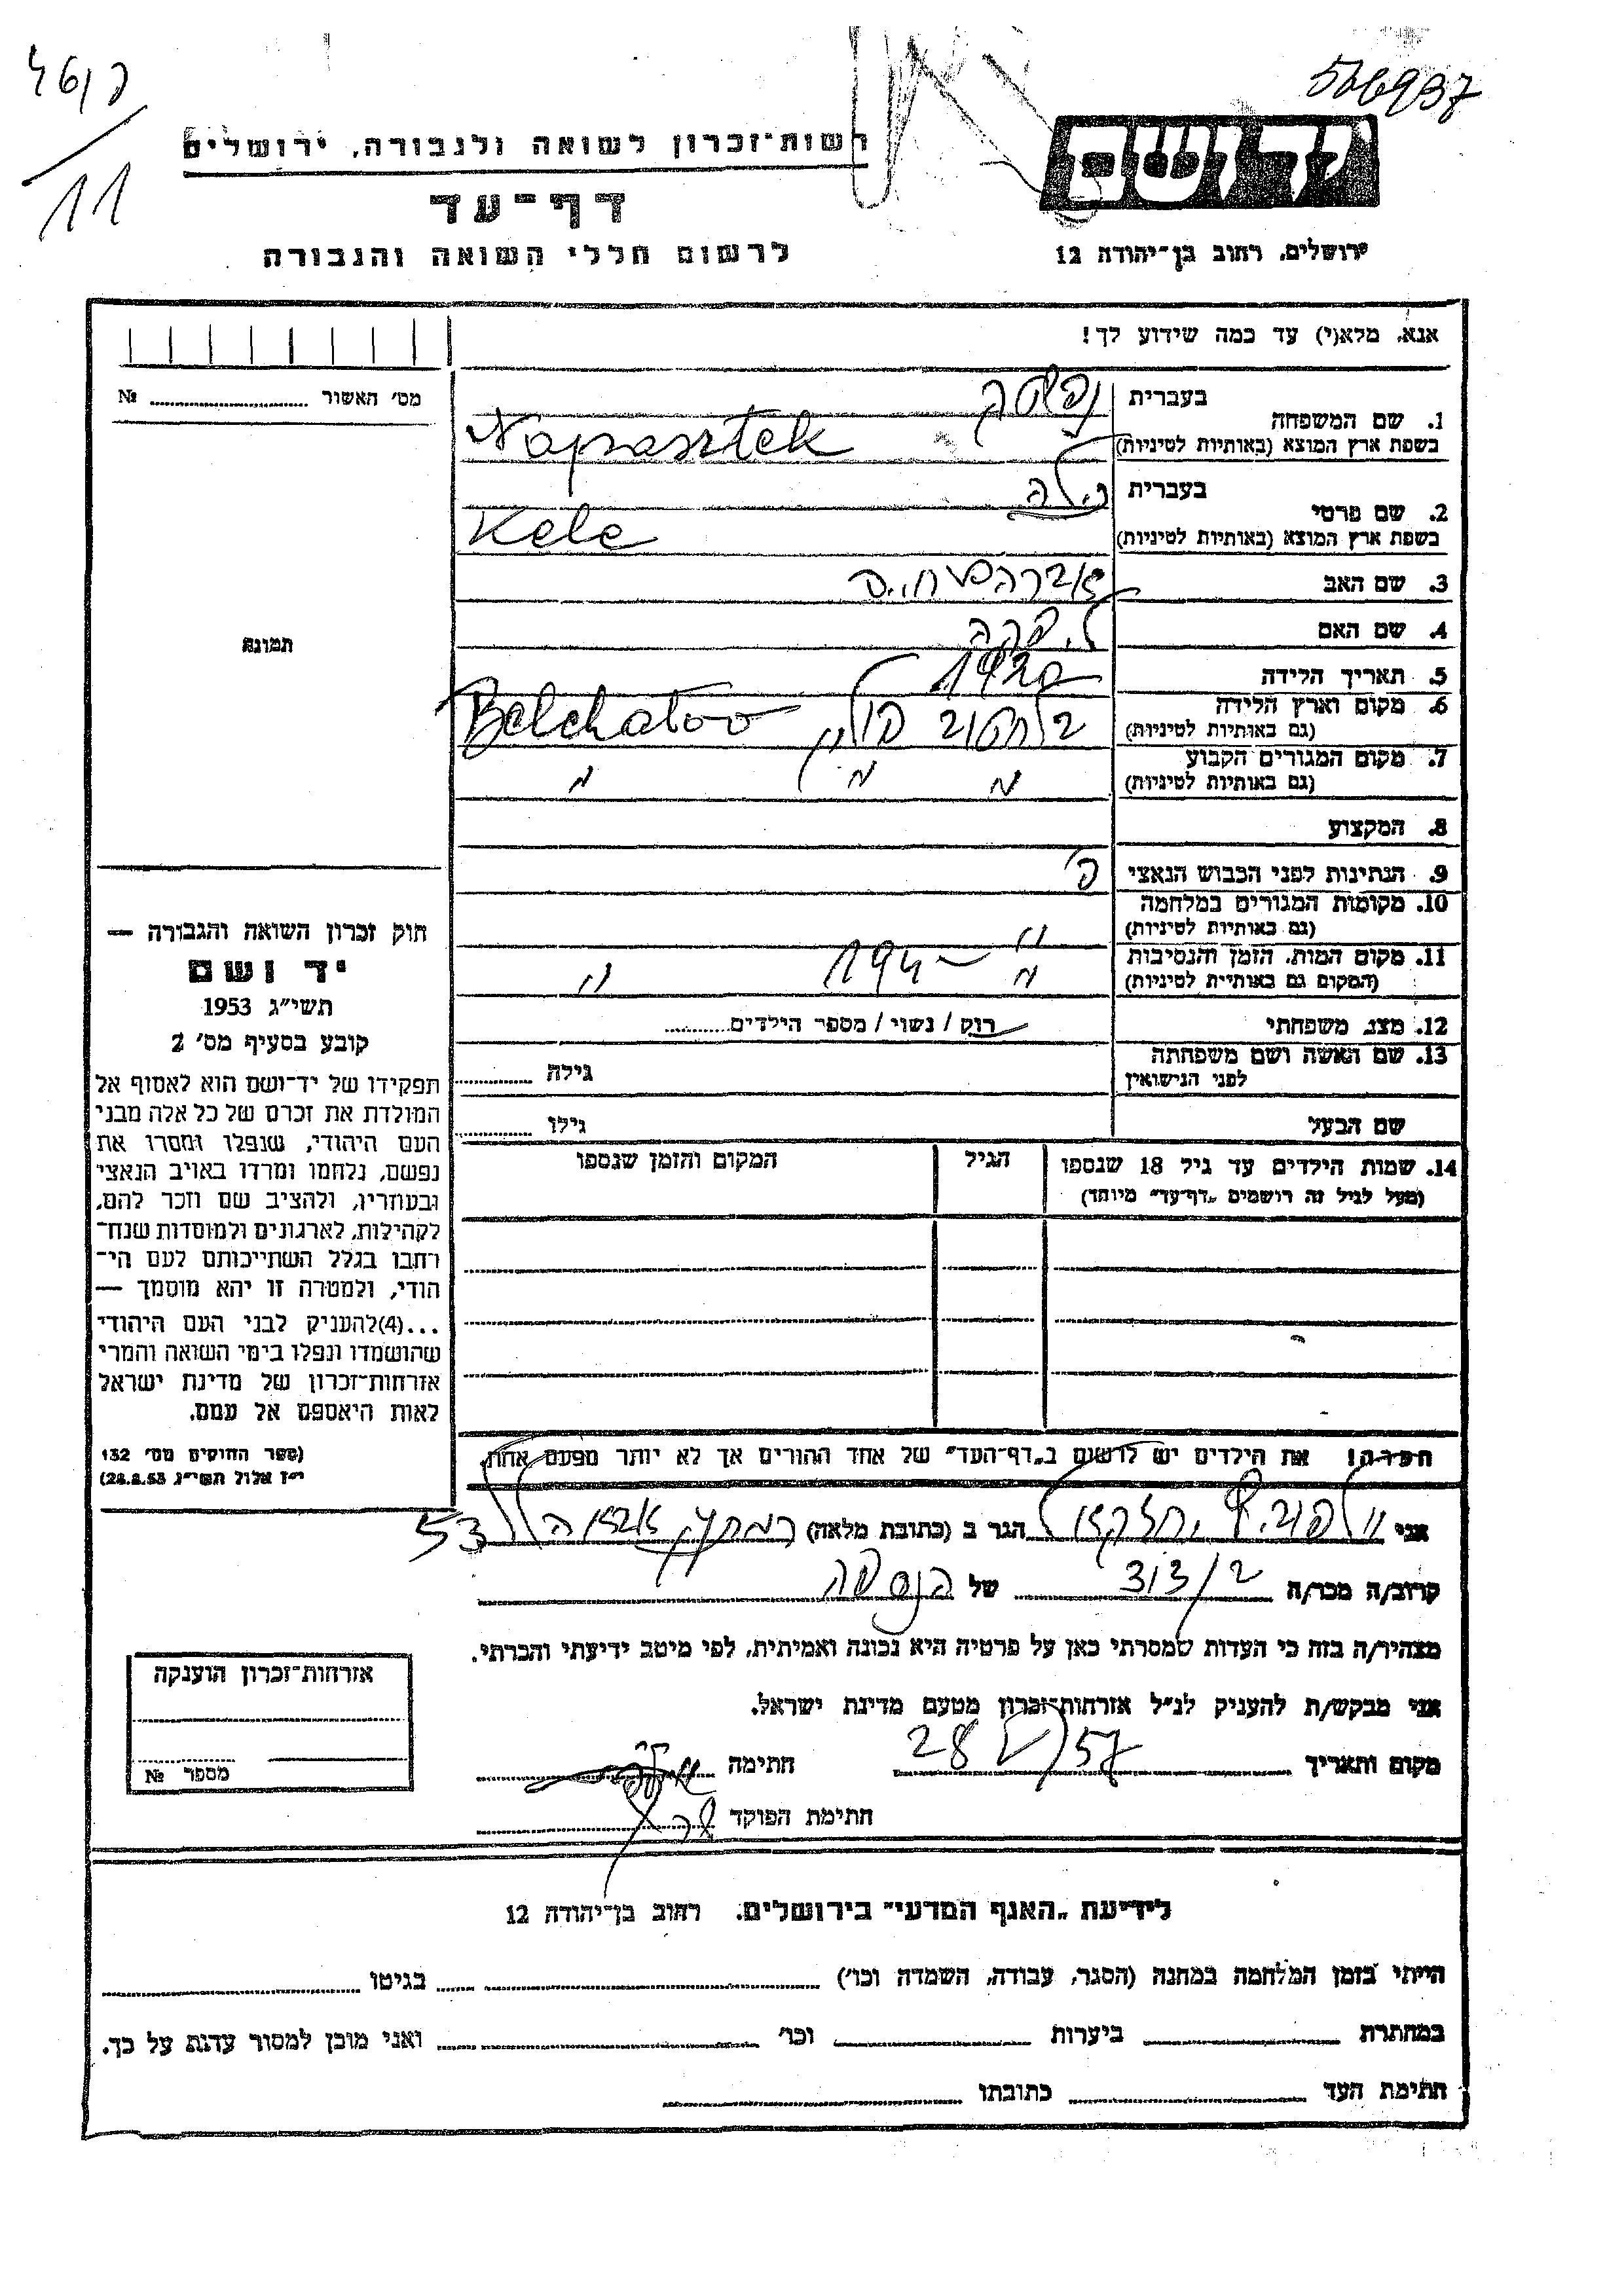 566937
11
יד ושם
רשות־זכרון לשואה ולגבורה, ירושלים
דף־עד
לרשום חללי השואה והגבורה
ירושלים, רחוב בן־יהודה 12
אנא, מלא(י) עד כמה שידוע לך!
מס׳ האשור №
1. שם המשפחה
בעברית
בשפת ארץ המוצא (באותיות לטיניות) Napasztek
2. שם פרטי
בעברית
בשפת ארץ המוצא (באותיות לטיניות) Kele
3. שם האב אברהם חיים
4. שם האם
5. תאריך הלידה
6. מקום וארץ הלידה
(גם באותיות לטיניות) בלחטוב פולין Belchatow
7. מקום המגורים הקבוע
(גם באותיות לטיניות) " " "
8. המקצוע
9. הנתינות לפני הכבוש הנאצי פ׳
10. מקומות המגורים במלחמה
(גם באותיות לטיניות) "
11. מקום המות, הזמן והנסיבות
(המקום גם באותיית לטיניות) " "
12. מצב משפחתי רוק / נשוי / מספר הילדים
13. שם האשה ושם משפחתה
לפני הנישואין גילה
שם הבעל גילו
14. שמות הילדים עד גיל 18 שנספו
(מעל לגיל זה רושמים „דף־עד״ מיוחד)
הגיל
המקום והזמן שנספו
תמונה
חוק זכרון השואה והגבורה —
יד ושם
תשי״ג 1953
קובע בסעיף מס׳ 2
תפקידו של יד־ושם הוא לאסוף אל
המולדת את זכרם של כל אלה מבני
העם היהודי, שנפלו ומסרו את
נפשם, נלחמו ומרדו באויב הנאצי
ובעוזריו, ולהציב שם וזכר להם,
לקהילות, לארגונים ולמוסדות שנח־
רחבו בגלל השתייכותם לעם הי־
הודי, ולמטרה זו יהא מוסמך —
...(4)להעניק לבני העם היהודי
שהושמדו ונפלו בימי השואה והמרי
אזרחות־זכרון של מדינת ישראל
לאות היאספם אל עמם.
(ספר החוקים מס׳ 132
י״ז אלול תשי״ג, 28.8.53)
הערה! את הילדים יש לרשום ב„דף־העד״ של אחד ההורים אך לא יותר מפעם אחת.
אני הגר ב (כתובת מלאה) 53
קרוב/ה מכר/ה של
מצהיר/ה בזה כי העדות שמסרתי כאן על פרטיה היא נכונה ואמיתית, לפי מיטב ידיעתי והכרתי.
אני מבקש/ת להעניק לנ״ל אזרחות־זכרון מטעם מדינת ישראל.
מקום ותאריך 28/V/57 חתימה
חתימת הפוקד
אזרחות־זכרון הוענקה
מספר №
לידיעת „האגף המדעי״ בירושלים. רחוב בן־יהודה 12
הייתי בזמן המלחמה במחנה (הסגר, עבודה, השמדה וכו׳) בגיטו
במחתרת ביערות וכו׳ ואני מוכן למסור עדות על כך.
חתימת העד כתובתו